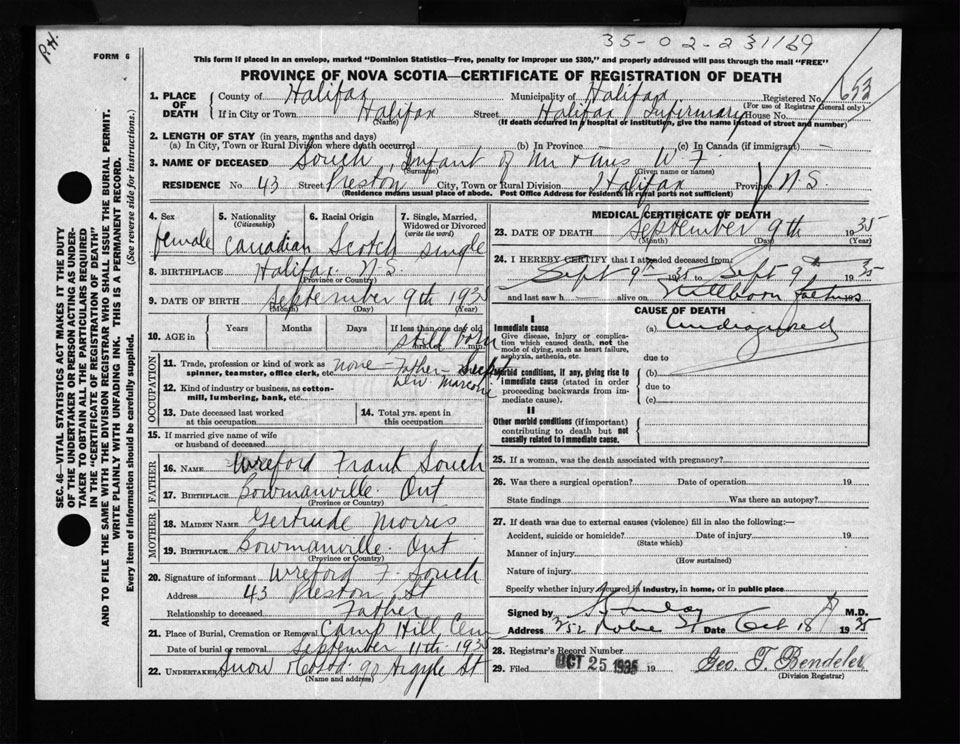 P.H.
35-02-231169
FORM 6
This form if placed in an envelope, marked "Dominion Statistics—Free, penalty for improper use $300," and properly addressed will pass through the mail "FREE"
PROVINCE OF NOVA SCOTIA—CERTIFICATE OF REGISTRATION OF DEATH
653
1. PLACE OF DEATH County of Halifax Municipality of Halifax Registered No.
(For use of Registrar General only)
If in City or Town Halifax Street Halifax Infirmary House No.
(Name) (If death occurred in a hospital or institution, give the name instead of street and number)
2. LENGTH OF STAY (in years, months and days)
(a) In City, Town or Rural Division where death occurred (b) In Province (c) In Canada (if immigrant)
3. NAME OF DECEASED Souch, Infant of Mr & Mrs W. F.
(Surname) (Given name or names)
RESIDENCE No. 43 Street Preston City, Town or Rural Division Halifax Province N.S.
(Residence means usual place of abode. Post Office Address for residents in rural parts not sufficient)
SEC. 46—VITAL STATISTICS ACT MAKES IT THE DUTY
OF THE UNDERTAKER OR PERSON ACTING AS UNDER-
TAKER TO OBTAIN ALL THE PARTICULARS REQUIRED
IN THE "CERTIFICATE OF REGISTRATION OF DEATH"
AND TO FILE THE SAME WITH THE DIVISION REGISTRAR WHO SHALL ISSUE THE BURIAL PERMIT.
WRITE PLAINLY WITH UNFADING INK. THIS IS A PERMANENT RECORD.
Every item of information should be carefully supplied. (See reverse side for instructions.)
4. Sex 5. Nationality (Citizenship) 6. Racial Origin 7. Single, Married, Widowed or Divorced (write the word)
female Canadian Scotch single
8. BIRTHPLACE Halifax N.S.
(Province or Country)
9. DATE OF BIRTH September 9th 1935
(Month) (Day)
10. AGE in Years Months Days If less than one day old
still born hrs. min.
OCCUPATION
11. Trade, profession or kind of work as spinner, teamster, office clerk, etc. none - Father -
12. Kind of industry or business, as cotton-mill, lumbering, bank, etc.
13. Date deceased last worked at this occupation
14. Total yrs. spent in this occupation
15. If married give name of wife or husband of deceased
FATHER
16. NAME Wreford Frank Souch
17. BIRTHPLACE Bowmanville. Ont
(Province or Country)
MOTHER
18. MAIDEN NAME Gertrude Morris
19. BIRTHPLACE Bowmanville. Ont
(Province or Country)
20. Signature of informant Wreford F. Souch
Address 43 Preston St
Relationship to deceased Father
21. Place of Burial, Cremation or Removal Camp Hill Cem
Date of burial or removal September 11th 1935
22. UNDERTAKER Snow & Co Ltd 90 Argyle St
(Name and address)
MEDICAL CERTIFICATE OF DEATH
23. DATE OF DEATH September 9th 1935
(Month) (Day) (Year)
24. I HEREBY CERTIFY that I attended deceased from:
Sept 9th 1935 to Sept 9th 1935
and last saw h alive on Stillborn 193
CAUSE OF DEATH
I
Immediate cause
Give disease, injury or complication which caused death, not the mode of dying, such as heart failure, asphyxia, asthenia, etc.
(a) Undiagnosed
due to
Morbid conditions, if any, giving rise to immediate cause (stated in order proceeding backwards from immediate cause).
(b)
due to
(c)
II
Other morbid conditions (if important) contributing to death but not causally related to immediate cause.
25. If a woman, was the death associated with pregnancy?
26. Was there a surgical operation? Date of operation 19
State findings Was there an autopsy?
27. If death was due to external causes (violence) fill in also the following:—
Accident, suicide or homicide? Date of injury 19
(State which)
Manner of injury
(How sustained)
Nature of injury
Specify whether injury occurred in industry, in home, or in public place
Signed by M.D.
Address 252 Robie St Date Oct 18 1935
28. Registrar's Record Number
29. Filed OCT 25 1935 19 Geo. T. Bendeler
(Division Registrar)